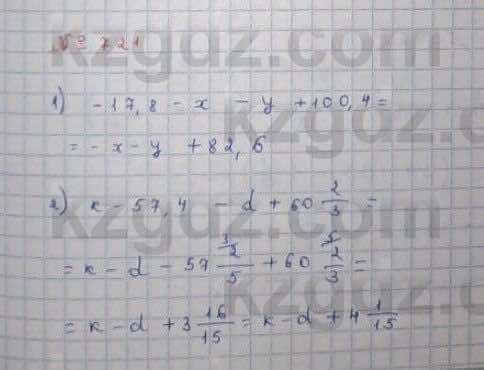 № 721
1) -17,8 - x - y + 100,4 =
= -x - y + 82,6
2) к - 57,4 - d + 60 2/3 =
= к - d - 57 2/5 + 60 2/3 =
= к - d + 3 16/15 = к - d + 4 1/15
kzgdz.com
kzgdz.com
kzgdz.com